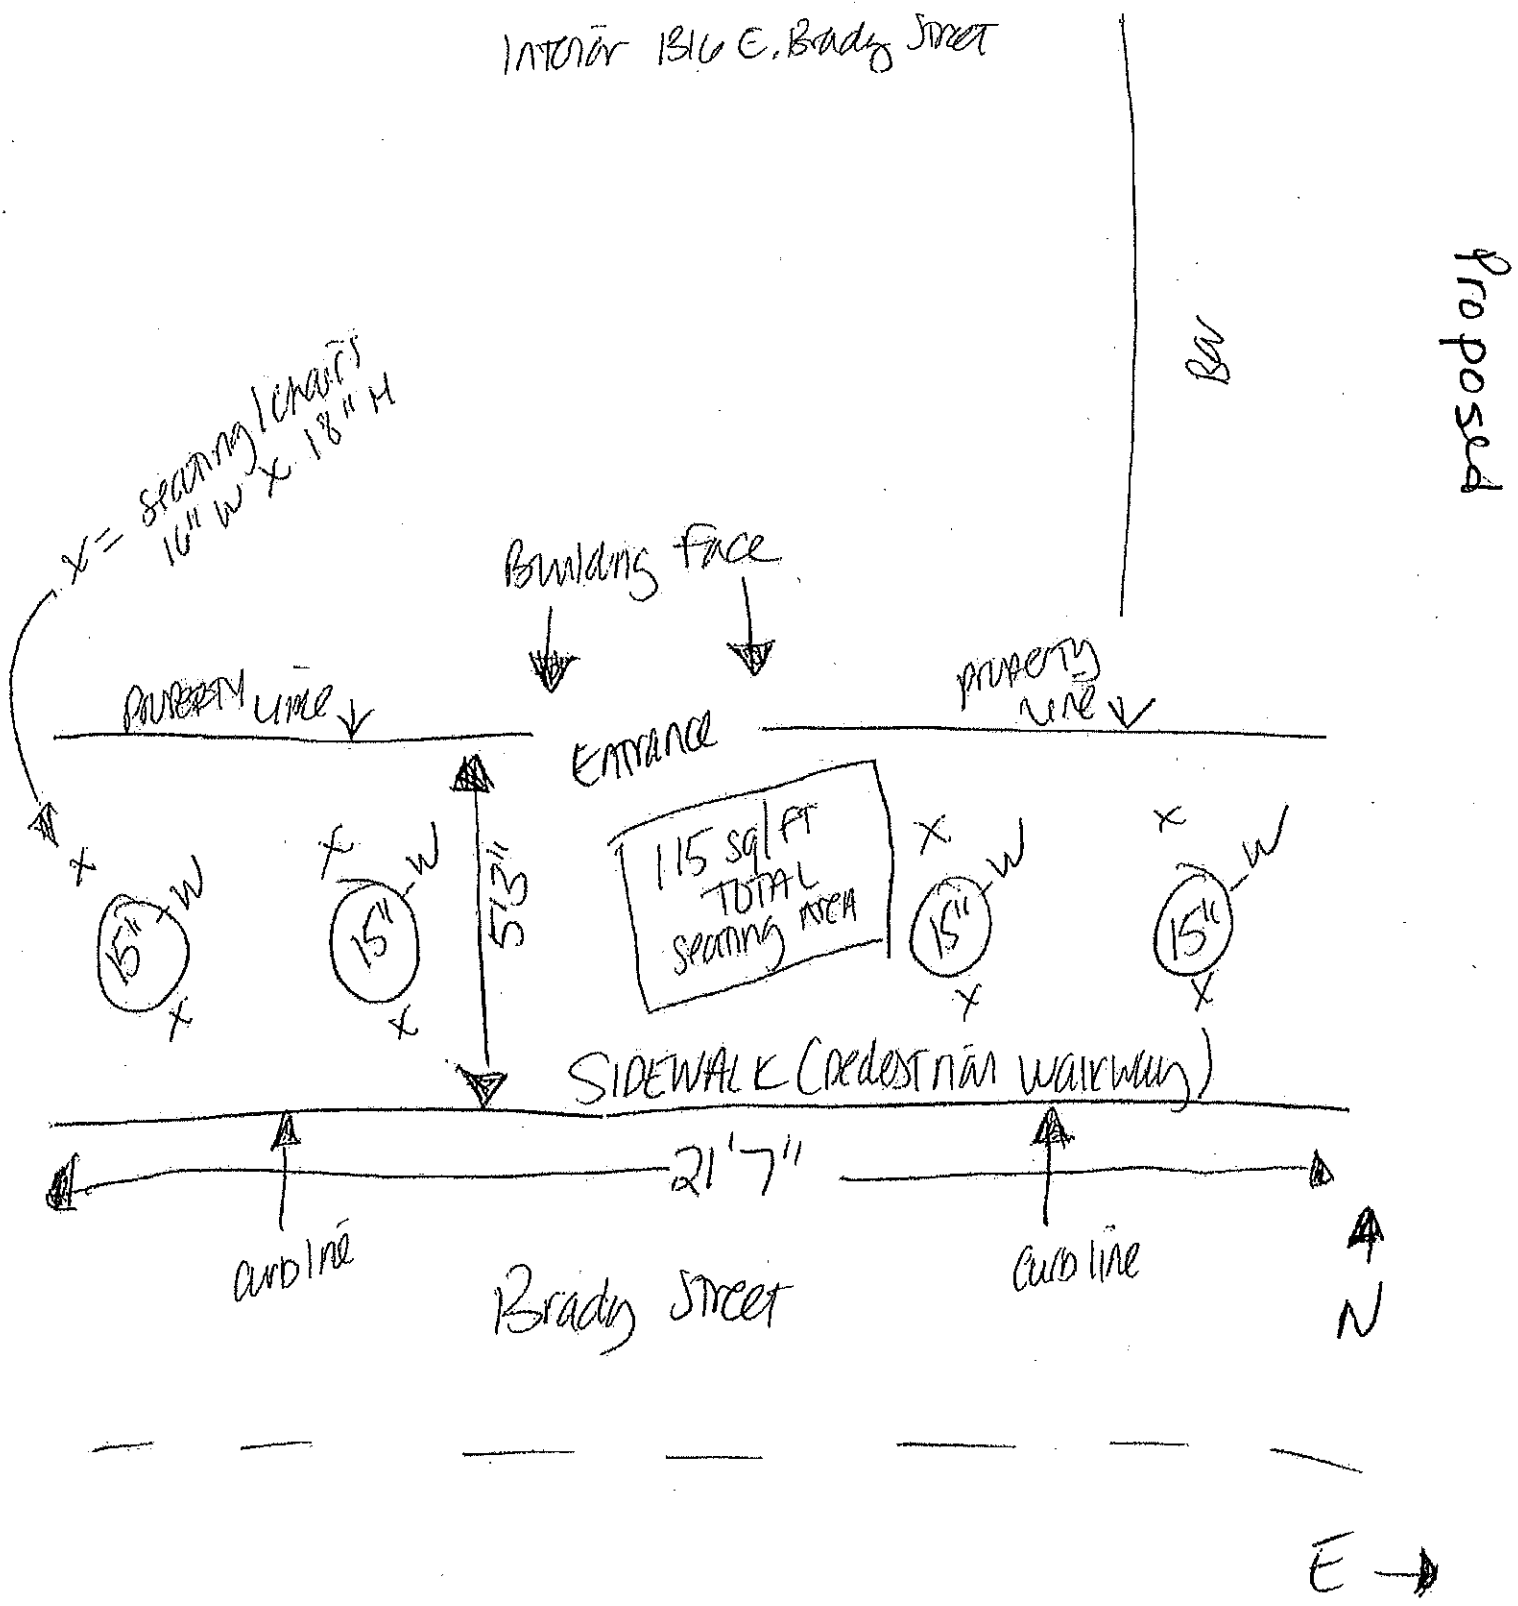 Interior 1316 E. Brady Street
Proposed
Bar
X = seating/chairs
16" W X 18" H
Building Face
Property line
property
line
Entrance
115 sq/FT
TOTAL
seating Area
5'3"
X
X
X
X
W
W
W
W
15"
15"
15"
15"
X
X
X
X
SIDEWALK (pedestrian walkway)
21'7"
curb line
curb line
Brady Street
N
E